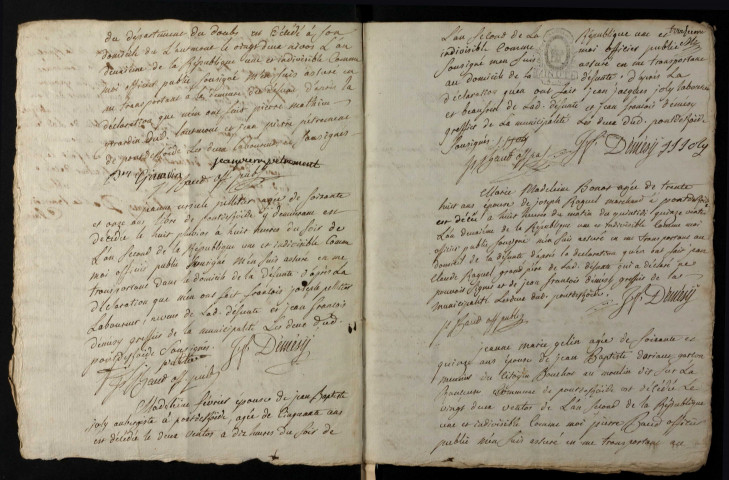 du département du doubs est décédé à son
domicile du Laumont le vingt deux nivos L'an
deuxième de la République une et indivisible Comme
moi officier public soussigné m'en suis assuré en
me transportant à la demeure d'après la
déclaration que m'en ont fait pierre mathieu
girardin dud. Laumont et jean pierre petremene
de pont Les deux Laboureurs soussignés
girardin jeanpierrepetrement
off publ
ursule pelletier agée de soixante
et onze ans fille de pontdesfoide y demeurant est
décédée le huit pluvios à huit heures du soir de
L'an Second de la République une et indivisible Comme
moi officier public soussigné m'en suis assuré en me
transportant dans le domicile de la défunte d'après La
déclaration que m'en ont fait françois joseph pelletier
Laboureur, neveu de Lad. défunte et jean françois
dimésy greffier de la municipalité Les deux dud.
pontdesfoide soussignés
pelletier
off publ Jf Dimésÿ
Madeleine février épouse de jean Baptiste
joly aubergiste à pontdesfoide, agée de Cinquante ans
est décédée le deux ventos à dix heures du soir de
L'an second de La République une et
indivisible Comme moi officier public
soussigné m'en suis assuré en me transportant
au domicile de la défunte d'après La
déclaration qu'en ont fait jean jacques joly laboureur
et beaufrere de Lad. défunte et jean françois dimésy
greffier de la municipalité Les deux dud. pontdesfoide
soussignés
off publ Jf Dimésÿ JJJoly
Marie Madeleine agée de trente
huit ans épouse de joseph Raguel marchand à pontdesfoide
est décédée à huit heures du matin du quintidi quinze ventos
L'an deuxième de la République une et indivisible Comme moi
officier public soussigné m'en suis assuré en me transportant au
domicile de la défunte d'après la déclaration qu'en ont fait jean
Claude Raguel grand père de Lad. défunte qui a déclaré ne
pouvoir signer et de jean françois dimésy greffier de la
municipalité Les deux dud. pontdesfoide
off public Jf Dimésÿ
jeanne marie gelin agée de soixante et
quinze ans épouse de jean Baptiste garçon
meunier du Citoyen au moulin dit sur La
Commune de pontdesfoide est décédée Le
vingt deux ventos de L'an second de la République
une et indivisible Comme moi pierre officier
public m'en suis assuré en me transportant au